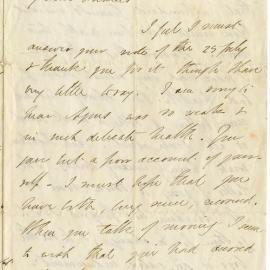 I feel I must
answer your note of the 29 July
& thank you for it though I have
very little to say. I am sorry to
hear Agnes was so weak &
in such delicate health. You
gave but a poor account of your-
self - I must hope that you
have both, long since, recovered.
When you talk of moving I seem
to wish that you had moved